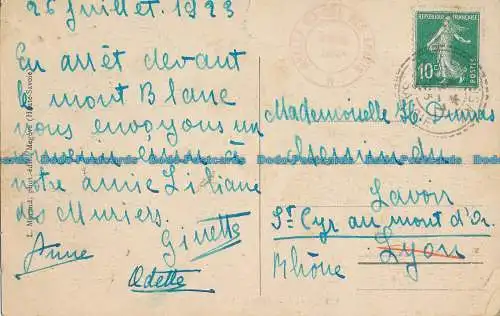 26 Juillet. 1923
En arrêt devant
le mont Blanc
nous envoyons un
à
notre amie Liliane
des Muriers.
Anne Ginette
Odette
L. Morand, phot.-édit., Megève (Haute-Savoie)
REPUBLIQUE FRANÇAISE
10c
POSTES
Mademoiselle H. Dumas
du
Lavoir
St Cyr au mont d'Or.
Lyon
Rhône